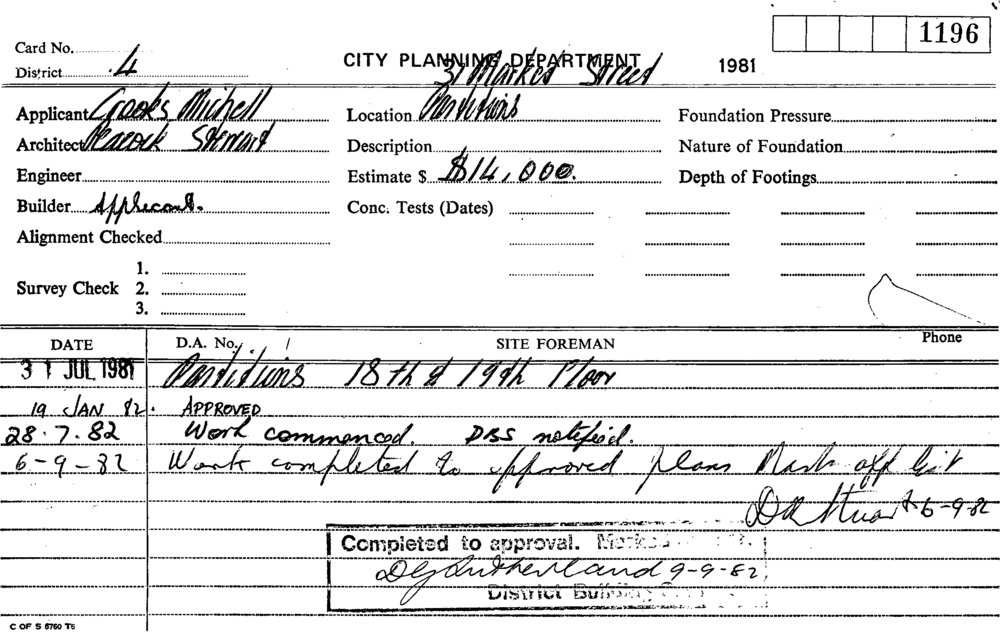 1196
Card No.
District 4
CITY PLANNING DEPARTMENT
1981
31 Market Street
Applicant Crooks Michell
Location Partitions
Foundation Pressure
Architect Peacock Stewart
Description
Nature of Foundation
Engineer
Estimate $ $14,000.
Depth of Footings
Builder Applicant.
Conc. Tests (Dates)
Alignment Checked
1.
Survey Check 2.
3.
DATE D.A. No. SITE FOREMAN Phone
31 JUL 1981 Partitions 18th & 19th Floor
19 JAN 82. APPROVED
28.7.82 Work commenced. DBS notified.
6-9-82 Work completed to approved plans Mark off list
6-9-82
Completed to approval. Marked
9-9-82
District
C OF S 5750 T6